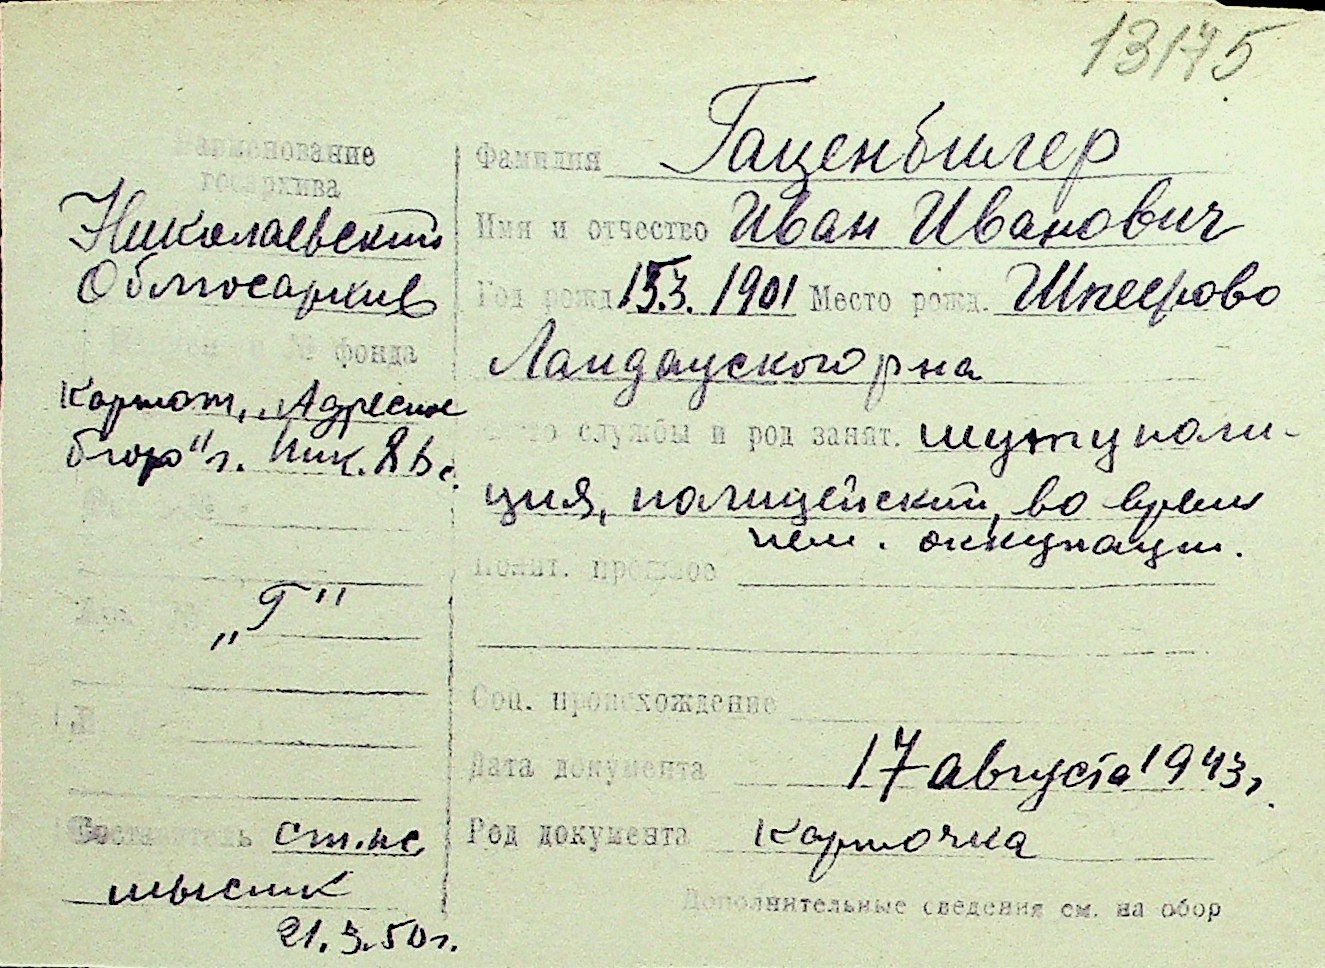 13175
Наименование
госархива
Николаевский
Облгосархив
№ фонда
Картот. „Адресное
бюро" г. Ник. 8 Б с.
„Г"
Составитель ст. нс
мысник
21.3.50 г.
Фамилия Гаценбилер
Имя и отчество Иван Иванович
Год рожд 15.3. 1901 Место рожд. Шпеерово
Ландауского р на
то службы и род занят. шутцполи-
ция, полицейский, во время
нем. оккупации.
Полит. прошлое
Соц. происхождение
Дата документа 17 августа 1943 г.
Род документа карточка
Дополнительные сведения см. на обор